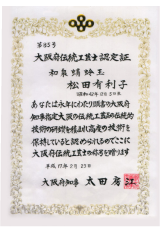 第85号
大阪府伝統工芸士認定証
和泉蜻蛉玉
松田有利子
あなたは永年にわたり頭書の大阪府
知事指定大阪の伝統工芸品の伝統的
技術の研鑽を積まれ高度の技術を
保持していると認められるのでここに
大阪府伝統工芸士の称号を贈ります
平成17年2月23日
大阪府知事 太田房江